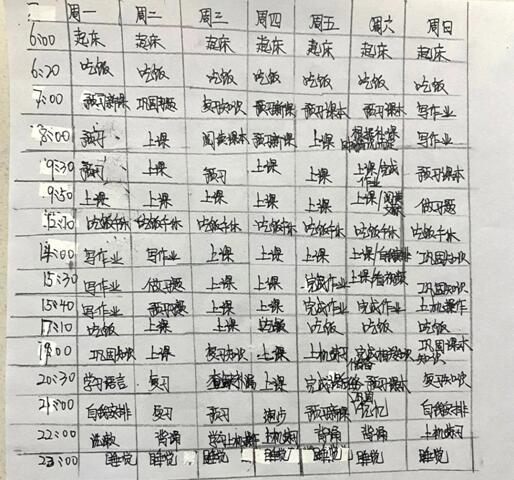 周一 周二 周三 周四 周五 周六 周日
6:00 起床 起床 起床 起床 起床 起床 起床
6:20 吃饭 吃饭 吃饭 吃饭 吃饭 吃饭 吃饭
7:00 预习新课 巩固习题 复习知识 预习新课 预习课本 预习课本 写作业
8:00 预习 上课 阅读课本 预习新课 上课 写作业
9:30 预习 上课 预习 上课 上课 上课/完成作业 预习课本
9:50 上课 上课 上课 上课 上课 上课/阅读 做习题
12:10 吃饭午休 吃饭午休 吃饭午休 吃饭午休 吃饭午休 吃饭午休 吃饭午休
14:00 写作业 写作业 上课 上课 上课 上课/自我安排 巩固知识
15:30 写作业 做习题 上课 上课 完成作业 上课 巩固知识
15:40 写作业 预习课 上课 上课 完成作业 完成作业 上机操作
17:10 吃饭 上课 上课 吃饭 吃饭 吃饭 吃饭
19:00 巩固知识 上课 复习知识 上课 上机练习 巩固课本知识
20:30 学习语言 复习 查缺补漏 上课 预习课本 复习知识
21:00 自我安排 复习 预习 跑步 预习新课 记忆 自我安排
22:00 背诵 上机练习 背诵 背诵 上机练习
23:00 睡觉 睡觉 睡觉 睡觉 睡觉 睡觉 睡觉